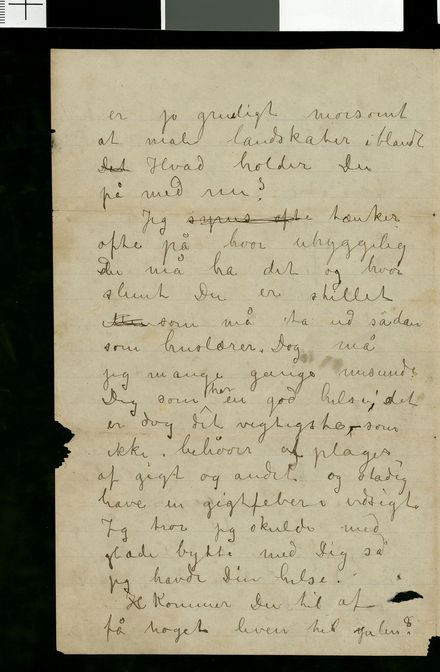 er jo grueligt morsomt
at male landskaber iblandt
Det Hvad holder Du
på med nu?
Jeg synes ofte tænker
ofte på hvor uhyggelig
Du må ha det og hvor
slemt Du er stillet
som må ta ud sådan
som huslærer. Dog må
jeg mange gange misunde
Dig som har en god helse, det
er dog det vigtigste, som
ikke behøver at plages
af gigt og andet og stadig
have en gigtfeber i udsigt.
Jeg tror jeg skulde med
glæde bytte med Dig så
jeg havde Din helse.
Kommer Du til at
få noget hjem til julen?